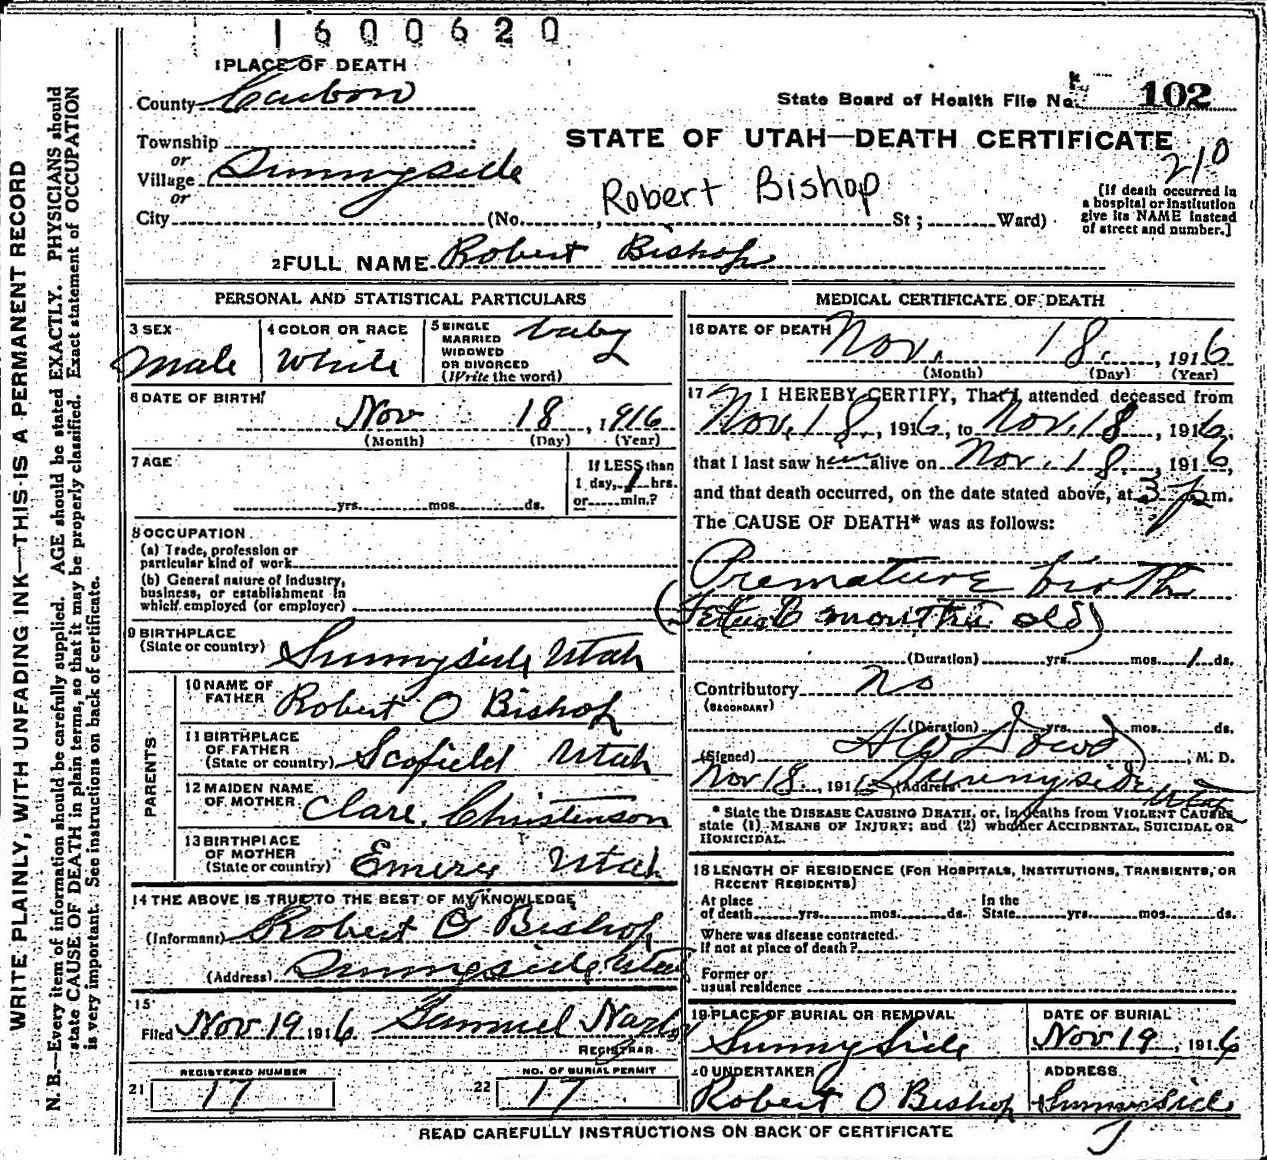 1600620
1 PLACE OF DEATH
County Carbon
State Board of Health File No. 102
Township
or
Village Sunnyside
or
STATE OF UTAH—DEATH CERTIFICATE
210
Robert Bishop
City (No. , St ; Ward)
[If death occurred in
a hospital or institution
give its NAME instead
of street and number.]
2 FULL NAME Robert Bishop
PERSONAL AND STATISTICAL PARTICULARS
3 SEX
Male
4 COLOR OR RACE
White
5 SINGLE
MARRIED
WIDOWED
OR DIVORCED
(Write the word)
baby
6 DATE OF BIRTH
Nov 18, 1916
(Month) (Day) (Year)
7 AGE
yrs. mos. ds.
If LESS than
1 day, 1 hrs.
or min.?
8 OCCUPATION
(a) Trade, profession or
particular kind of work
(b) General nature of Industry,
business, or establishment in
which employed (or employer)
9 BIRTHPLACE
(State or country) Sunnyside Utah
PARENTS
10 NAME OF
FATHER Robert O Bishop
11 BIRTHPLACE
OF FATHER
(State or country) Scofield Utah
12 MAIDEN NAME
OF MOTHER Clare Christenson
13 BIRTHPLACE
OF MOTHER
(State or country) Emery Utah
14 THE ABOVE IS TRUE TO THE BEST OF MY KNOWLEDGE
(Informant) Robert O Bishop
(Address) Sunnyside Utah
15
Filed Nov 19 1916 Samuel
REGISTRAR
REGISTERED NUMBER
21 17
NO. OF BURIAL PERMIT
22 17
MEDICAL CERTIFICATE OF DEATH
16 DATE OF DEATH Nov. 18. , 1916
(Month) (Day) (Year)
17 I HEREBY CERTIFY, That I attended deceased from
Nov. 18, 1916, to Nov. 18, 1916,
that I last saw him alive on Nov. 18, 1916,
and that death occurred, on the date stated above, at 3 p m.
The CAUSE OF DEATH* was as follows:
Premature birth
(Fetus 6 months old)
(Duration) yrs. mos. 1 ds.
Contributory No
(SECONDARY)
(Duration) yrs. mos. ds.
(Signed) H W Dowd, M. D.
Nov 18, 1916 (Address) Sunnyside Utah
* State the DISEASE CAUSING DEATH, or, in deaths from VIOLENT CAUSES
state (1) MEANS OF INJURY; and (2) whether ACCIDENTAL, SUICIDAL OR
HOMICIDAL.
18 LENGTH OF RESIDENCE (FOR HOSPITALS, INSTITUTIONS, TRANSIENTS, OR
RECENT RESIDENTS)
At place
of death yrs. mos. ds.
In the
State yrs. mos. ds.
Where was disease contracted
If not at place of death ?
Former or
usual residence
19 PLACE OF BURIAL OR REMOVAL
Sunnyside
DATE OF BURIAL
Nov 19, 1916
20 UNDERTAKER
Robert O Bishop
ADDRESS
Sunnyside
READ CAREFULLY INSTRUCTIONS ON BACK OF CERTIFICATE
WRITE PLAINLY, WITH UNFADING INK—THIS IS A PERMANENT RECORD
N. B.—Every item of information should be carefully supplied. AGE should be stated EXACTLY. PHYSICIANS should
state CAUSE OF DEATH in plain terms, so that it may be properly classified. Exact statement of OCCUPATION
is very important. See instructions on back of certificate.